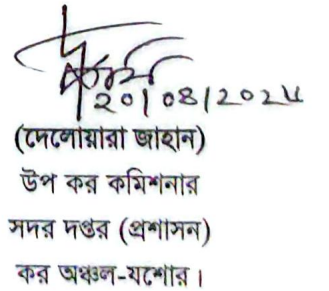 ২০/০৪/২০২৫
(দেলোয়ারা জাহান)
উপ কর কমিশনার
সদর দপ্তর (প্রশাসন)
কর অঞ্চল-যশোর।